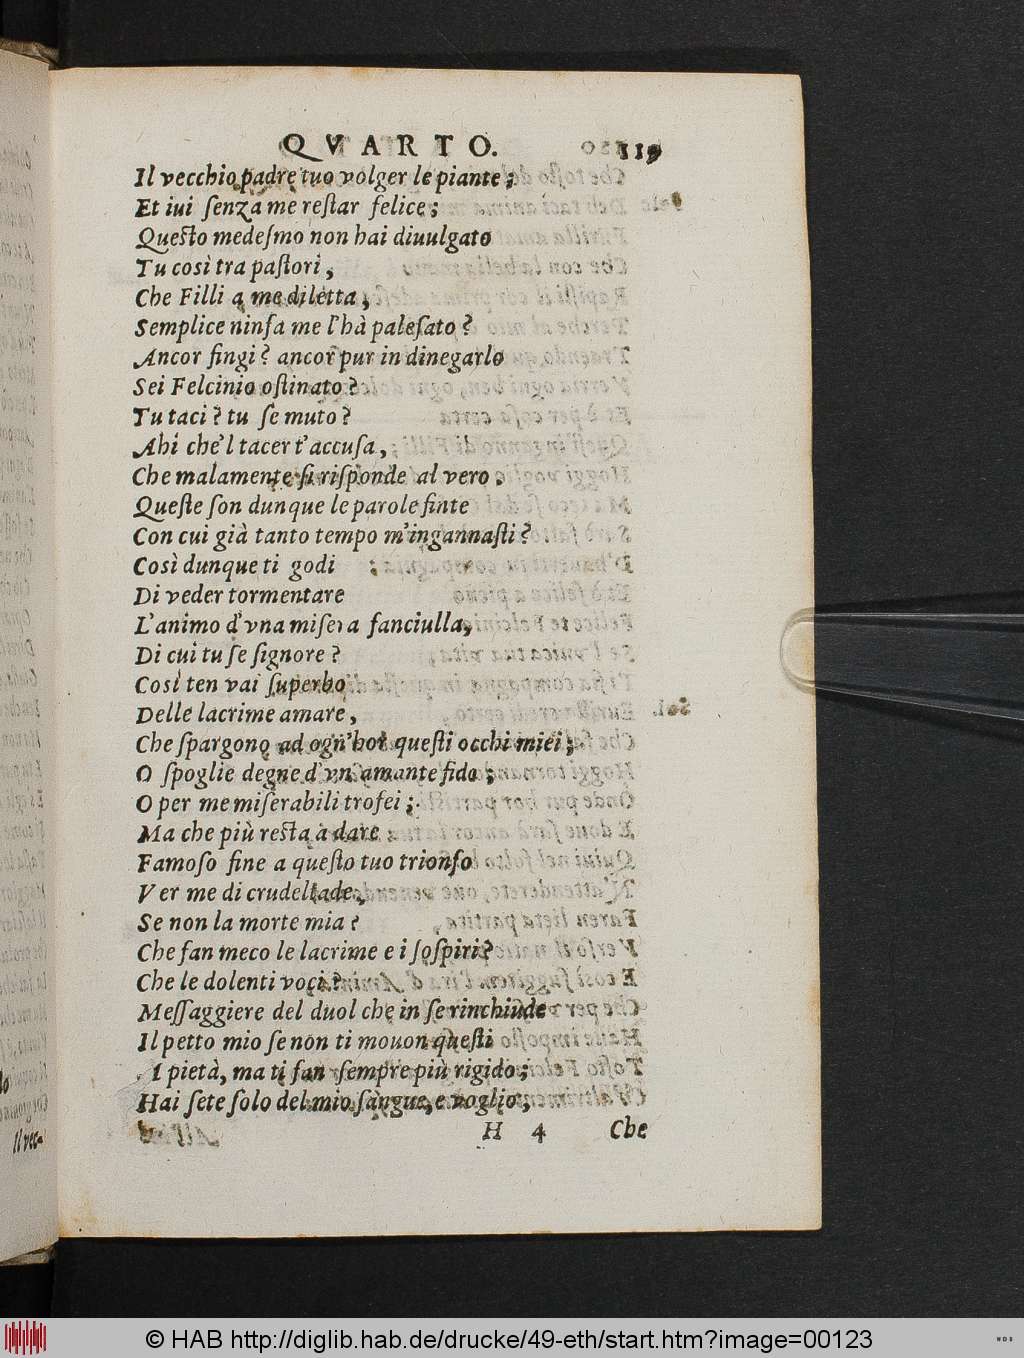 QVARTO. 119
Il vecchio padre tuo volger le piante;
Et iui ſenza me reſtar felice;
Queſto medeſmo non hai diuulgato
Tu così tra paſtori,
Che Filli a me diletta,
Semplice ninfa me l'hà paleſato?
Ancor fingi? ancor pur in dinegarlo
Sei Felcinio oſtinato?
Tu taci? tu ſe muto?
Ahi che'l tacer t'accuſa,
Che malamente ſi riſponde al vero.
Queſte ſon dunque le parole finte
Con cui già tanto tempo m'ingannaſti?
Così dunque ti godi
Di veder tormentare
L'animo d'vna miſera fanciulla,
Di cui tu ſe ſignore?
Così ten vai ſuperbo
Delle lacrime amare,
Che ſpargono ad ogn'hor queſti occhi miei;
O ſpoglie degne d'vn amante fido;
O per me miſerabili trofei;
Ma che più reſta a dare
Famoſo fine a queſto tuo trionfo
Ver me di crudeltade,
Se non la morte mia?
Che fan meco le lacrime e i ſoſpiri?
Che le dolenti voci?
Meſſaggiere del duol che in ſe rinchiude
Il petto mio ſe non ti mouon queſti
A pietà, ma ti fan ſempre più rigido;
Hai ſete ſolo del mio ſangue, e voglio,
H 4 Che
Il vec-
© HAB http://diglib.hab.de/drucke/49-eth/start.htm?image=00123
WDB